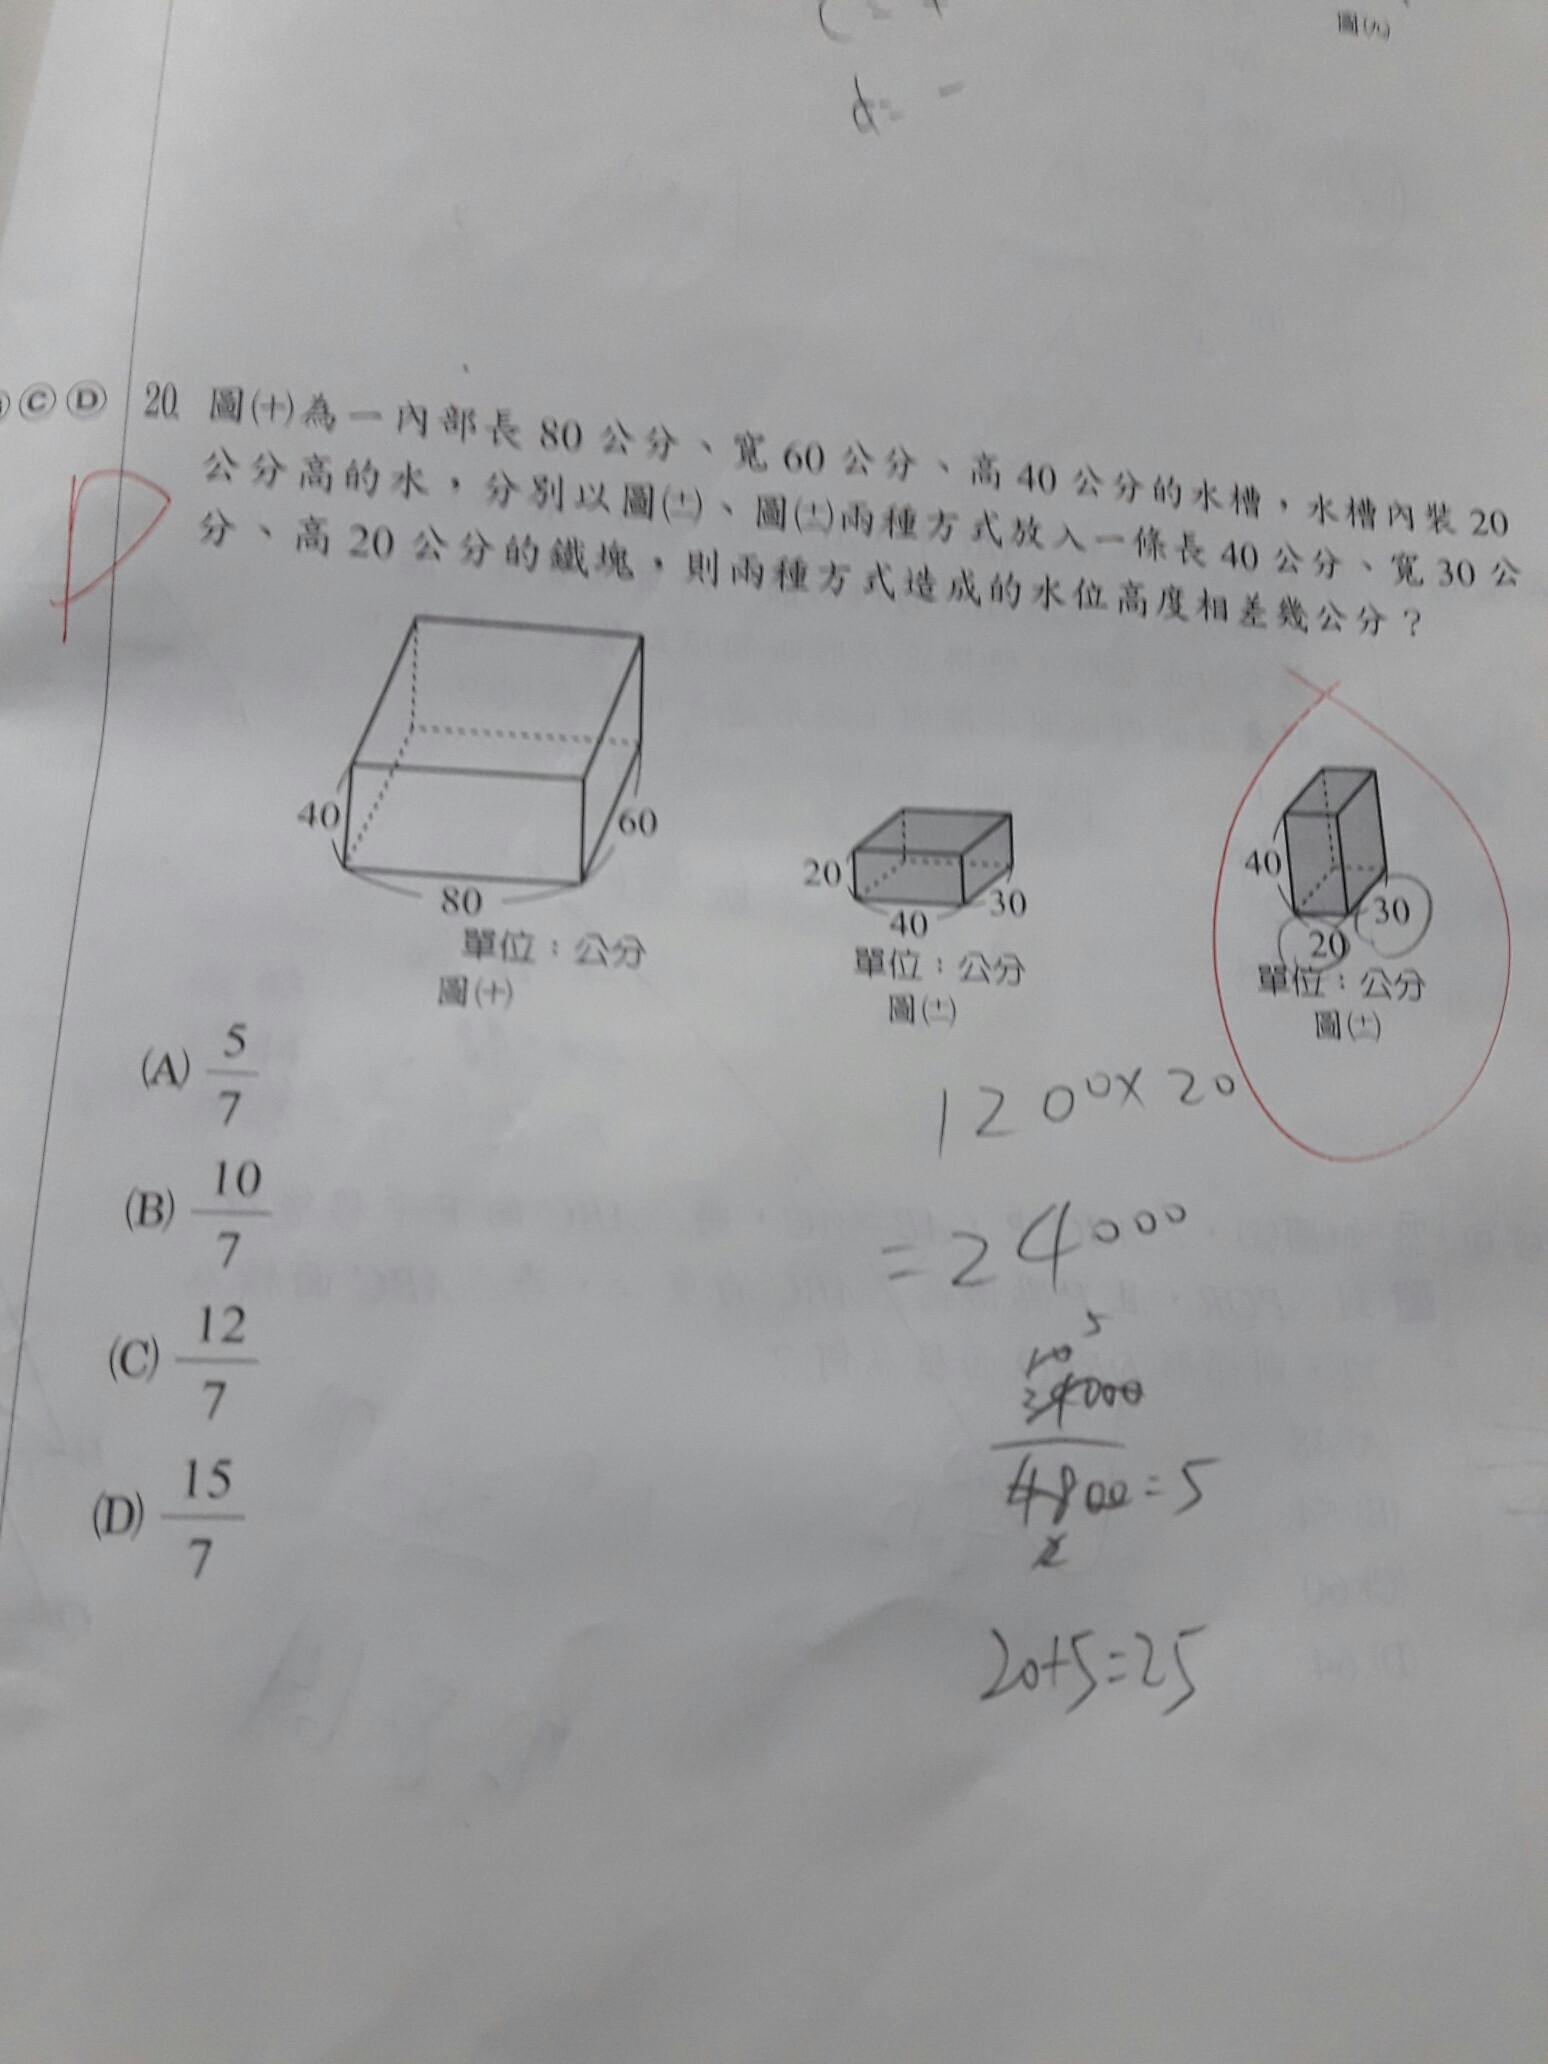 圖(九)
d = -
Ⓒ Ⓓ 20. 圖(十)為一內部長 80 公分、寬 60 公分、高 40 公分的水槽，水槽內裝 20
公分高的水，分別以圖(十一)、圖(十二)兩種方式放入一條長 40 公分、寬 30 公
分、高 20 公分的鐵塊，則兩種方式造成的水位高度相差幾公分？
D
40
60
80
單位：公分
圖(十)
20
30
40
單位：公分
圖(十一)
40
30
20
單位：公分
圖(十二)
(A) 5/7
(B) 10/7
(C) 12/7
(D) 15/7
1200×20
=24000
5
10
24000
4800=5
2
20+5=25